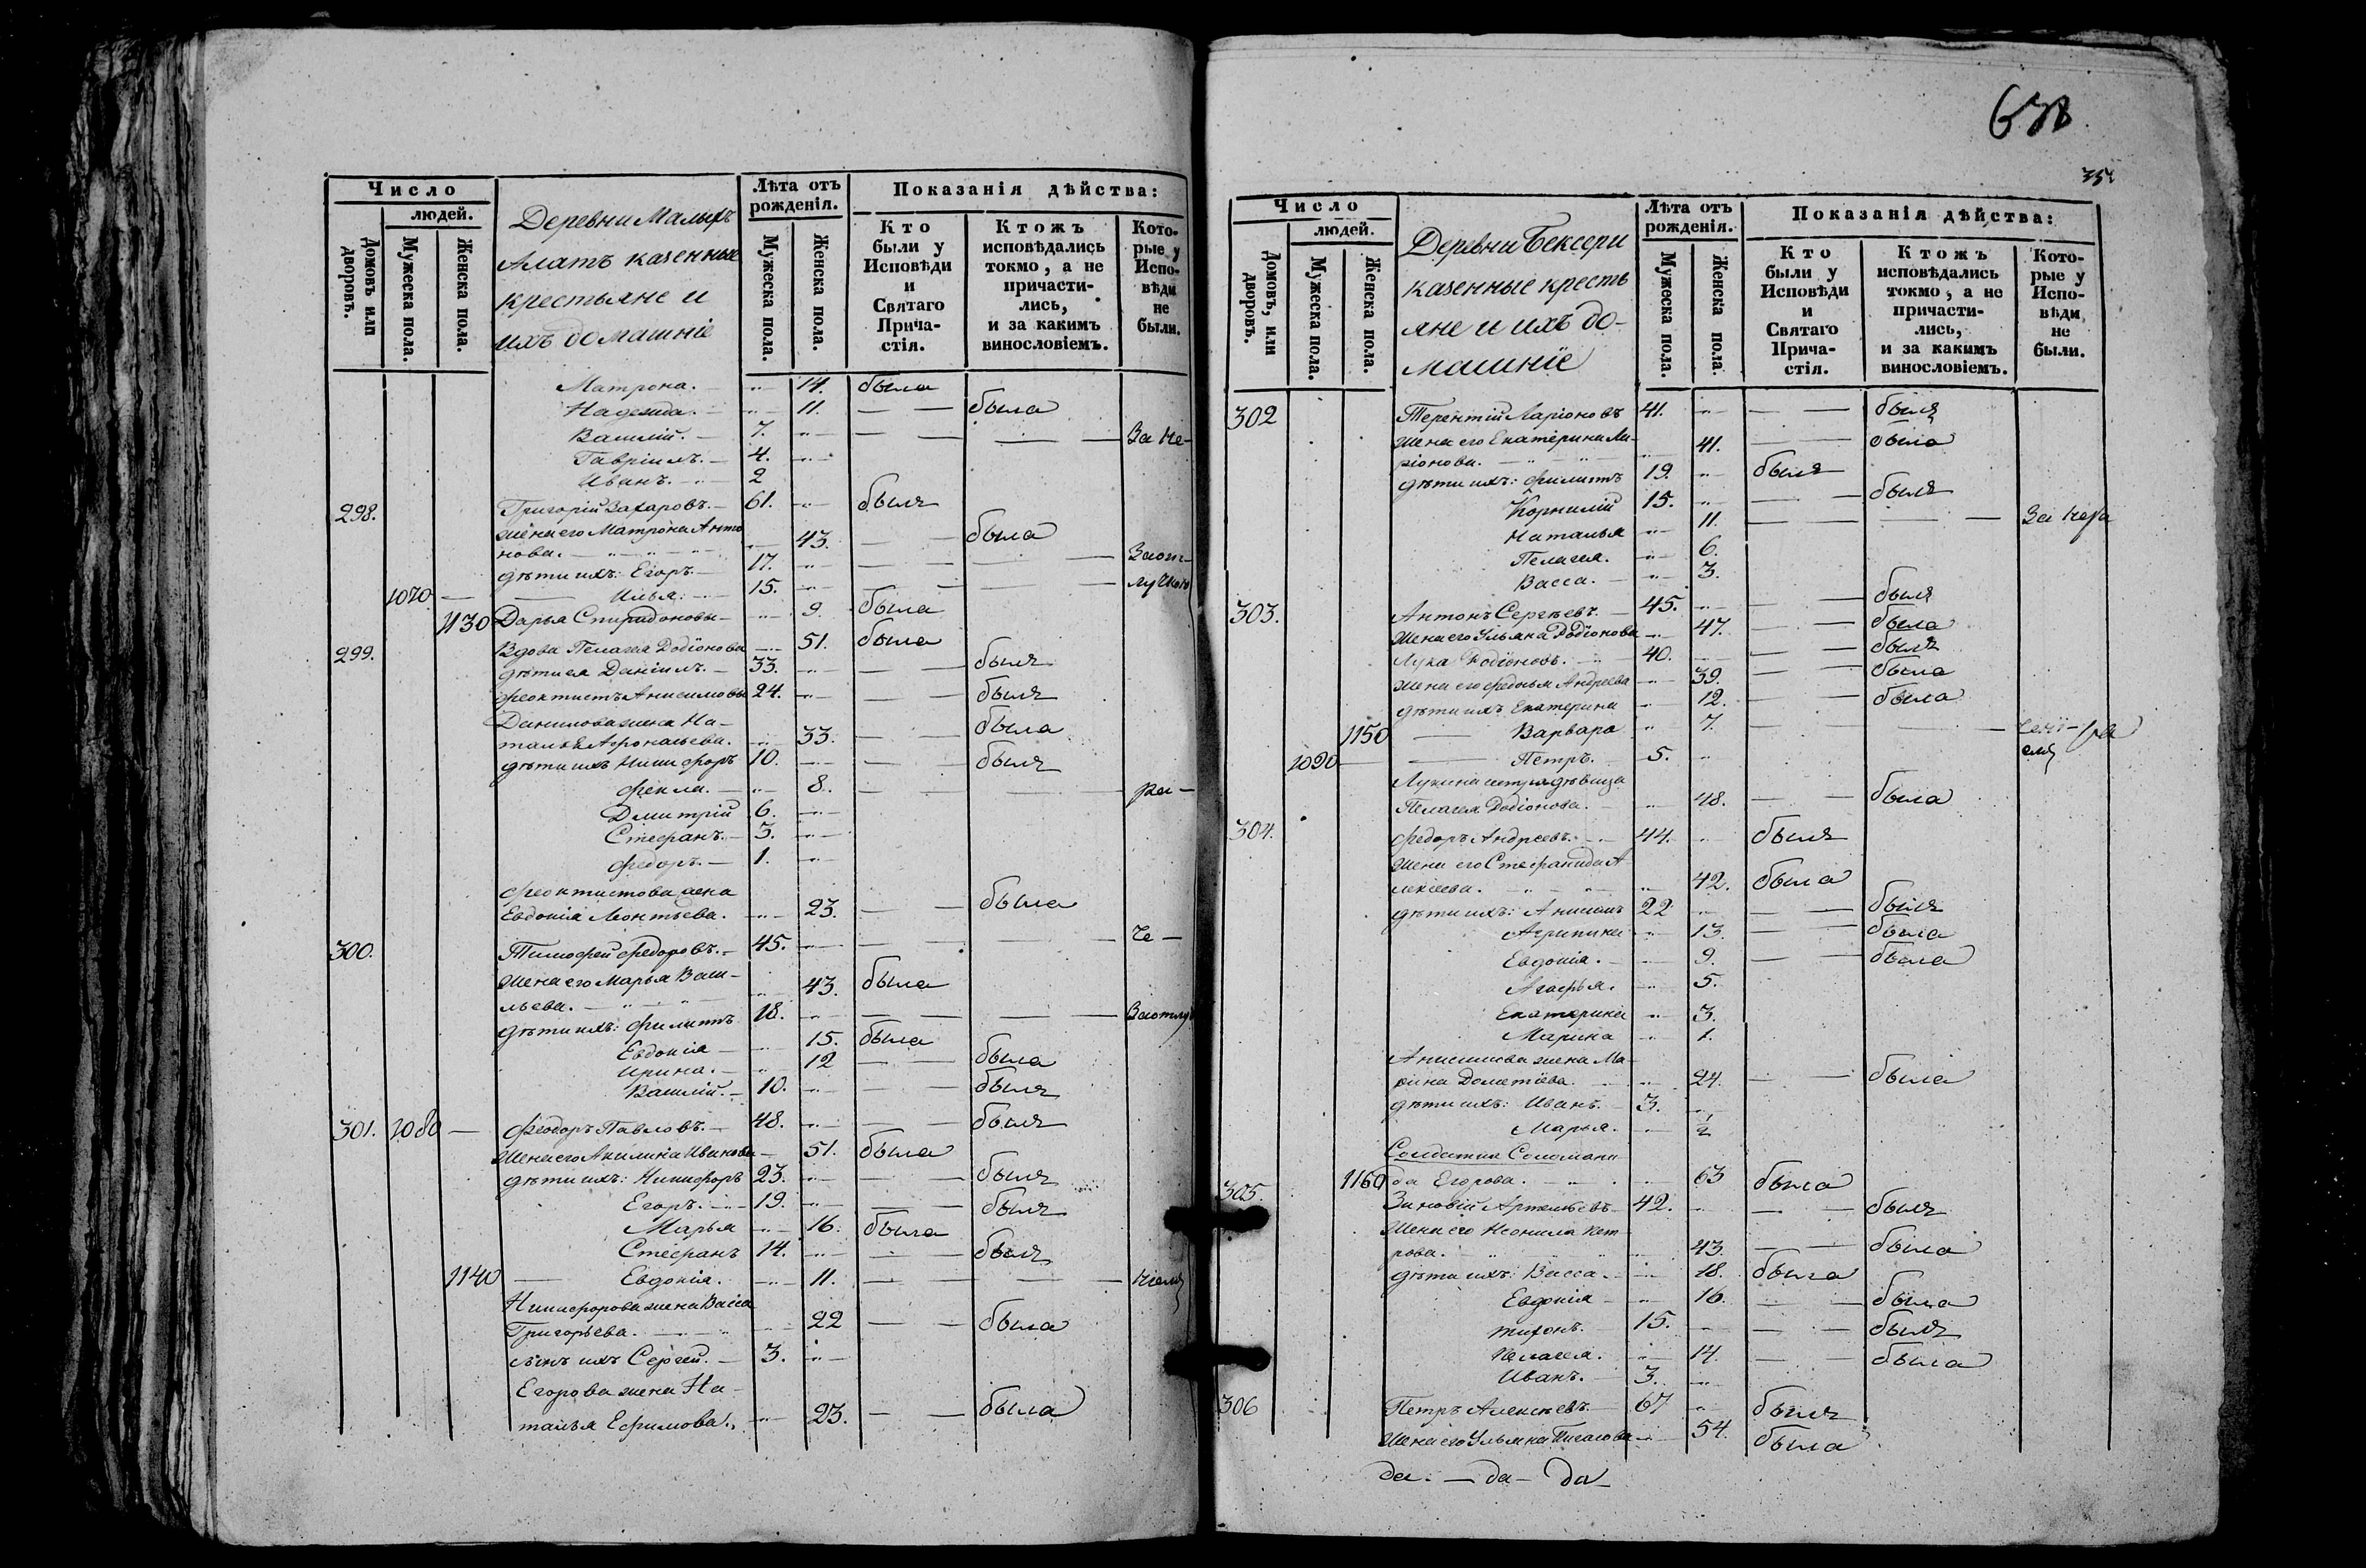 Число
людей.
Домовъ или дворовъ.
Мужеска пола.
Женска пола.
Деревни Малыхъ
Алатъ казенные
крестьяне и
ихъ домашніе
Лѣта отъ рожденія.
Мужеска пола.
Женска пола.
Показанія дѣйства:
Кто были у Исповѣди и Святаго Причастія.
Ктожъ исповѣдались токмо, а не причастились, и за какимъ винословіемъ.
Которые у Исповѣди не были.
Матрона. 14. была
Надежда. 11. была
Василій. 7. За не-
Гавріилъ. 4.
Иванъ. 2
298. Григорій Захаровъ. 61. былъ
жена его Матрона Анто
нова. 43. была
дѣти ихъ: Егоръ. 17. Заот-
1070 Илья. 15. лучкою
1130 Дарья Спиридоновы 9. была
299. Вдова Пелагея Родіонова 51. была
дѣти ея Даніилъ. 33. былъ
Феоктистъ Анисимовы 24. былъ
Данилова жена На-
талья Афонасьева. 33. была
дѣти ихъ Никифоръ 10. былъ
Фекла. 8. ра-
Дмитрій 6.
Стефанъ. 3.
Федоръ. 1.
Феоктистова жена
Евдокія Леонтьева. 23. была
300. Тимофей Федоровъ. 45. Че-
жена его Марья Васи-
льева. 43. была
дѣти ихъ: Филиппъ 18. Заотлуч
Евдокія 15. была
Ирина. 12 была
Василій. 10. былъ
301. 1080 Феодоръ Павловъ. 48. былъ
жена его Акилина Иванова 51. была
дѣти ихъ: Никифоръ 23. былъ
Егоръ. 19. былъ
Марья 16. была
Стефанъ 14. былъ
1140 Евдокія. 11. ніемъ
Никифорова жена Васса
Григорьева. 22 была
сынъ ихъ Сергей. 3.
Егорова жена На-
талья Ефимова. 23. была
638
35
Число
людей.
Домовъ, или дворовъ.
Мужеска пола.
Женска пола.
Деревни Бексери
казенные кресть
яне и ихъ до-
машніе
Лѣта отъ рожденія.
Мужеска пола.
Женскіа пола.
Показанія дѣйства:
Кто были у Исповѣди и Святаго Причастія.
Ктожъ исповѣдались токмо, а не причастились, и за какимъ винословіемъ.
Которые у Исповѣди не были.
302 Терентій Ларіоновъ 41. былъ
жена его Екатерина Ла-
ріонова. 41. была
дѣти ихъ: Филиппъ 19. былъ
Корнилій 15. былъ
Наталья 11. За нера
Пелагея. 6.
Васса. 3.
303. Антонъ Сергѣевъ. 45. былъ
жена его Ульяна Родіонова 47. была
Лука Родіоновъ. 40. былъ
жена его Федосья Андреева 39. была
дѣти ихъ Екатерина 12. была
1150 Варвара 7.
1090 Петръ. 5.
Лукина сестра дѣвица
Пелагея Родіонова. 48. была
304. Федоръ Андреевъ. 44. былъ
жена его Стефанида А
лексеева. 42. была
дѣти ихъ: Анисимъ 22 былъ
Агрипина 13. была
Евдокія. 9. была
Агафья. 5.
Екатерина 3.
Марина 1.
Анисимова жена Ма-
рина Дометіева. 24. была
дѣти ихъ: Иванъ. 3.
Марья. 1/2
Солдатка Соломани
1160 да Егорова. 63 была
305. Зиновій Артемьевъ 42. былъ
жена его Неонила Пет
рова. 43. была
дѣти ихъ: Васса. 18. была
Евдокія 16. была
Тихонъ. 15. былъ
Пелагея. 14. была
Иванъ. 3.
306 Петръ Алексѣевъ. 67 былъ
жена его Ульяна 54. была
да. — да — да